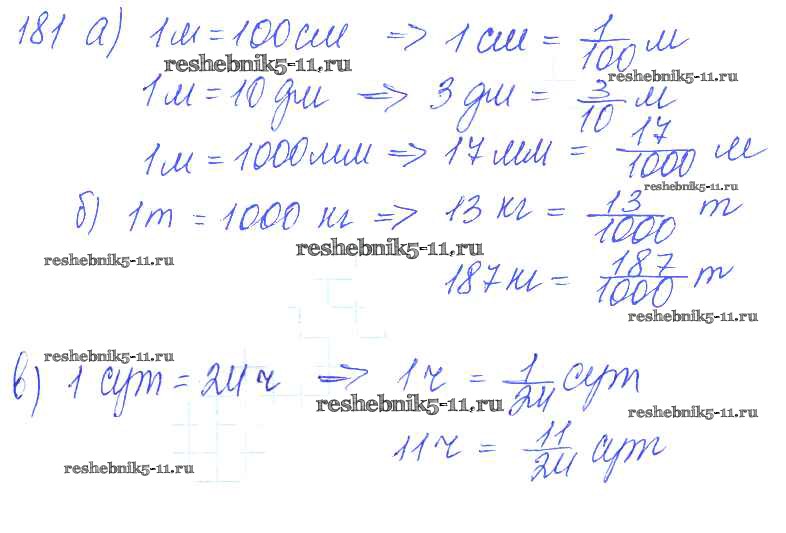 181 а) 1м = 100см => 1 см = 1/100 м
reshebnik5-11.ru
reshebnik5-11.ru
1м = 10 дм => 3 дм = 3/10 м
1м = 1000мм => 17 мм = 17/1000 м
reshebnik5-11.ru
б) 1т = 1000 кг => 13 кг = 13/1000 т
reshebnik5-11.ru
reshebnik5-11.ru
187кг = 187/1000 т
reshebnik5-11.ru
reshebnik5-11.ru
в) 1 сут = 24 ч => 1ч = 1/24 сут
reshebnik5-11.ru
reshebnik5-11.ru
11ч = 11/24 сут
reshebnik5-11.ru